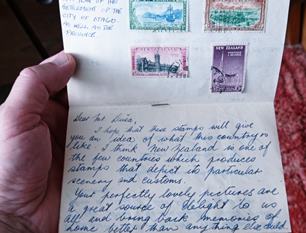 SETTLEMENT OF THE
CITY OF OTAGO.
AS WELL AS THE
PROVINCE.
NEW ZEALAND
Dear Mr
I hope that these stamps will give
you an idea of what this country is
like. I think New Zealand is one of
the few countries which produces
stamps that depict its particular
scenery and customs.
Your perfectly lovely pictures are
a great source of delight to us
all and bring back memories of
home better than anything else could.